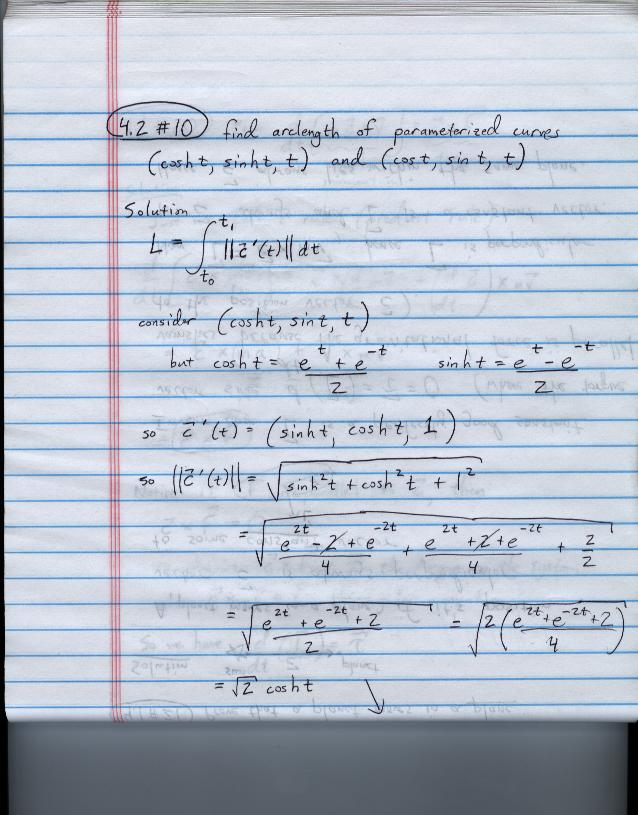 4.2 #10 find arclength of parameterized curves
(cosh t, sinh t, t) and (cos t, sin t, t)
Solution
L = ∫_{t₀}^{t₁} ||c⃗'(t)|| dt
consider (cosh t, sin t, t)
but cosh t = (e^t + e^-t)/2 sinh t = (e^t - e^-t)/2
so c⃗'(t) = (sinh t, cosh t, 1)
so ||c⃗'(t)|| = √(sinh²t + cosh²t + 1²)
= √((e^2t - 2 + e^-2t)/4 + (e^2t + 2 + e^-2t)/4 + 2/2)
= √((e^2t + e^-2t + 2)/2) = √(2((e^2t + e^-2t + 2)/4))
= √2 cosh t ↘